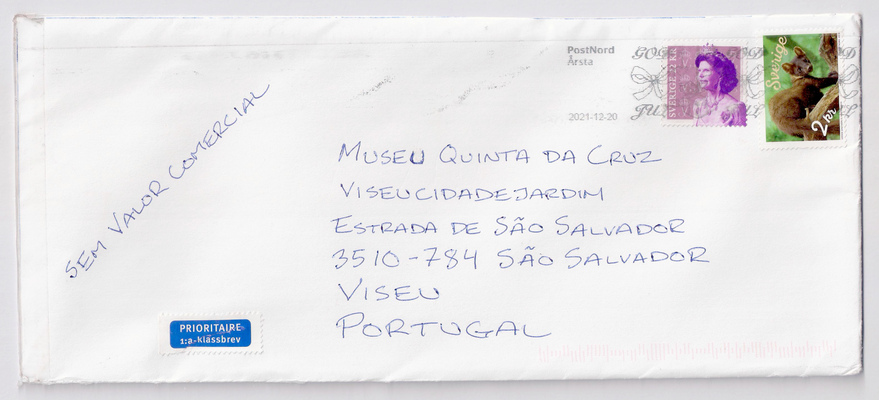 PostNord
Årsta
2021-12-20
GOD
JUL
SVERIGE 22 KR
Sverige
2 kr
MUSEU QUINTA DA CRUZ
VISEUCIDADEJARDIM
ESTRADA DE SÃO SALVADOR
3510-784 SÃO SALVADOR
VISEU
PORTUGAL
SEM VALOR COMERCIAL
PRIORITAIRE
1:a-klassbrev